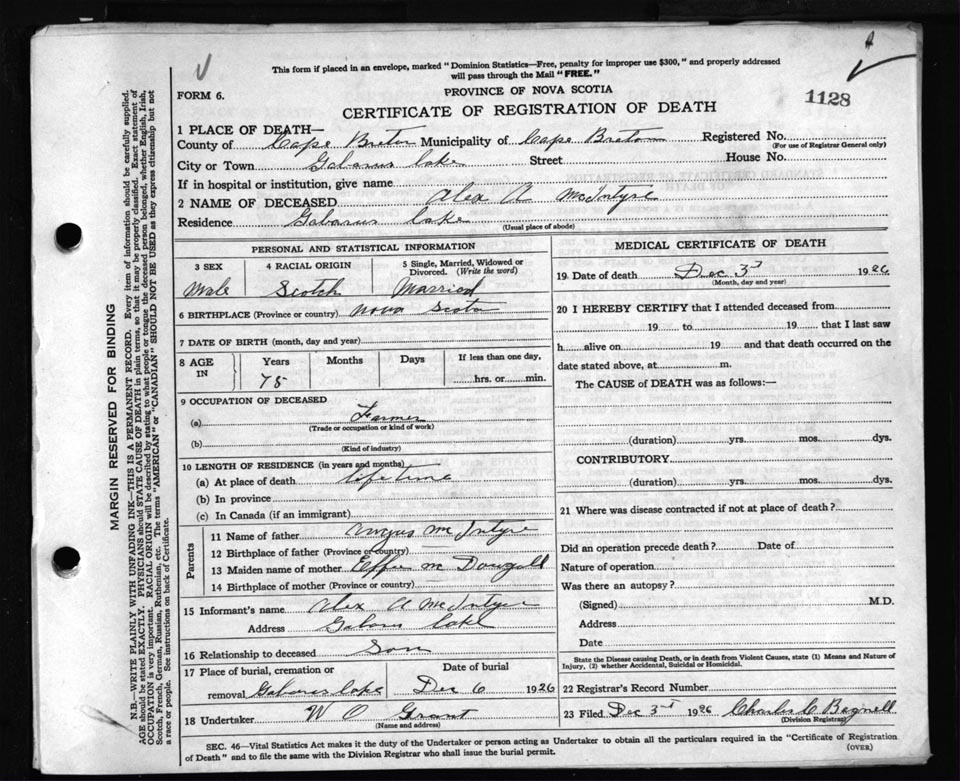 This form if placed in an envelope, marked "Dominion Statistics—Free, penalty for improper use $300," and properly addressed
will pass through the Mail "FREE."
FORM 6.
PROVINCE OF NOVA SCOTIA
1128
CERTIFICATE OF REGISTRATION OF DEATH
1 PLACE OF DEATH—
County of Cape Breton Municipality of Cape Breton Registered No.
(For use of Registrar General only)
City or Town Gabarus Lake Street House No.
If in hospital or institution, give name
2 NAME OF DECEASED Alex A McIntyre
Residence Gabarus Lake
(Usual place of abode)
MARGIN RESERVED FOR BINDING
N.B.—WRITE PLAINLY WITH UNFADING INK—THIS IS A PERMANENT RECORD. Every item of information should be carefully supplied.
AGE should be stated EXACTLY. PHYSICIANS should STATE CAUSE OF DEATH in plain terms, so that it may be properly classified. Exact statement of
OCCUPATION is very important. RACIAL ORIGIN will be described by stating to what people or tongue the deceased person belonged, whether English, Irish,
Scotch, French, German, Russian, Ruthenian, etc. The terms "AMERICAN" or "CANADIAN" SHOULD NOT BE USED as they express citizenship but not
a race or people. See instructions on back of Certificate.
PERSONAL AND STATISTICAL INFORMATION
3 SEX
4 RACIAL ORIGIN
5 Single, Married, Widowed or
Divorced. (Write the word)
Male Scotch Married
6 BIRTHPLACE (Province or country) Nova Scotia
7 DATE OF BIRTH (month, day and year)
8 AGE
IN
Years Months Days If less than one day,
75 hrs. or min.
9 OCCUPATION OF DECEASED
(a) Farmer
(Trade or occupation or kind of work)
(b)
(Kind of industry)
10 LENGTH OF RESIDENCE (in years and months)
(a) At place of death lifetime
(b) In province
(c) In Canada (if an immigrant)
Parents
11 Name of father Angus McIntyre
12 Birthplace of father (Province or country)
13 Maiden name of mother Effie McDougall
14 Birthplace of mother (Province or country)
15 Informant's name Alex A McIntyre
Address Gabarus Lake
16 Relationship to deceased Son
17 Place of burial, cremation or Date of burial
removal Gabarus Lake Dec 6 1926
18 Undertaker W O Grant
(Name and address)
MEDICAL CERTIFICATE OF DEATH
19 Date of death Dec 3rd 1926
(Month, day and year)
20 I HEREBY CERTIFY that I attended deceased from
19 to 19 that I last saw
h alive on 19 and that death occurred on the
date stated above, at m.
The CAUSE of DEATH was as follows:—
(duration) yrs. mos. dys.
CONTRIBUTORY
(duration) yrs. mos. dys.
21 Where was disease contracted if not at place of death?
Did an operation precede death? Date of
Nature of operation
Was there an autopsy?
(Signed) M.D.
Address
Date
State the Disease causing Death, or in death from Violent Causes, state (1) Means and Nature of
Injury, (2) whether Accidental, Suicidal or Homicidal.
22 Registrar's Record Number
23 Filed Dec 3rd 1926 Charles C Bagnell
(Division Registrar)
SEC. 46—Vital Statistics Act makes it the duty of the Undertaker or person acting as Undertaker to obtain all the particulars required in the "Certificate of Registration
of Death" and to file the same with the Division Registrar who shall issue the burial permit.
(OVER)